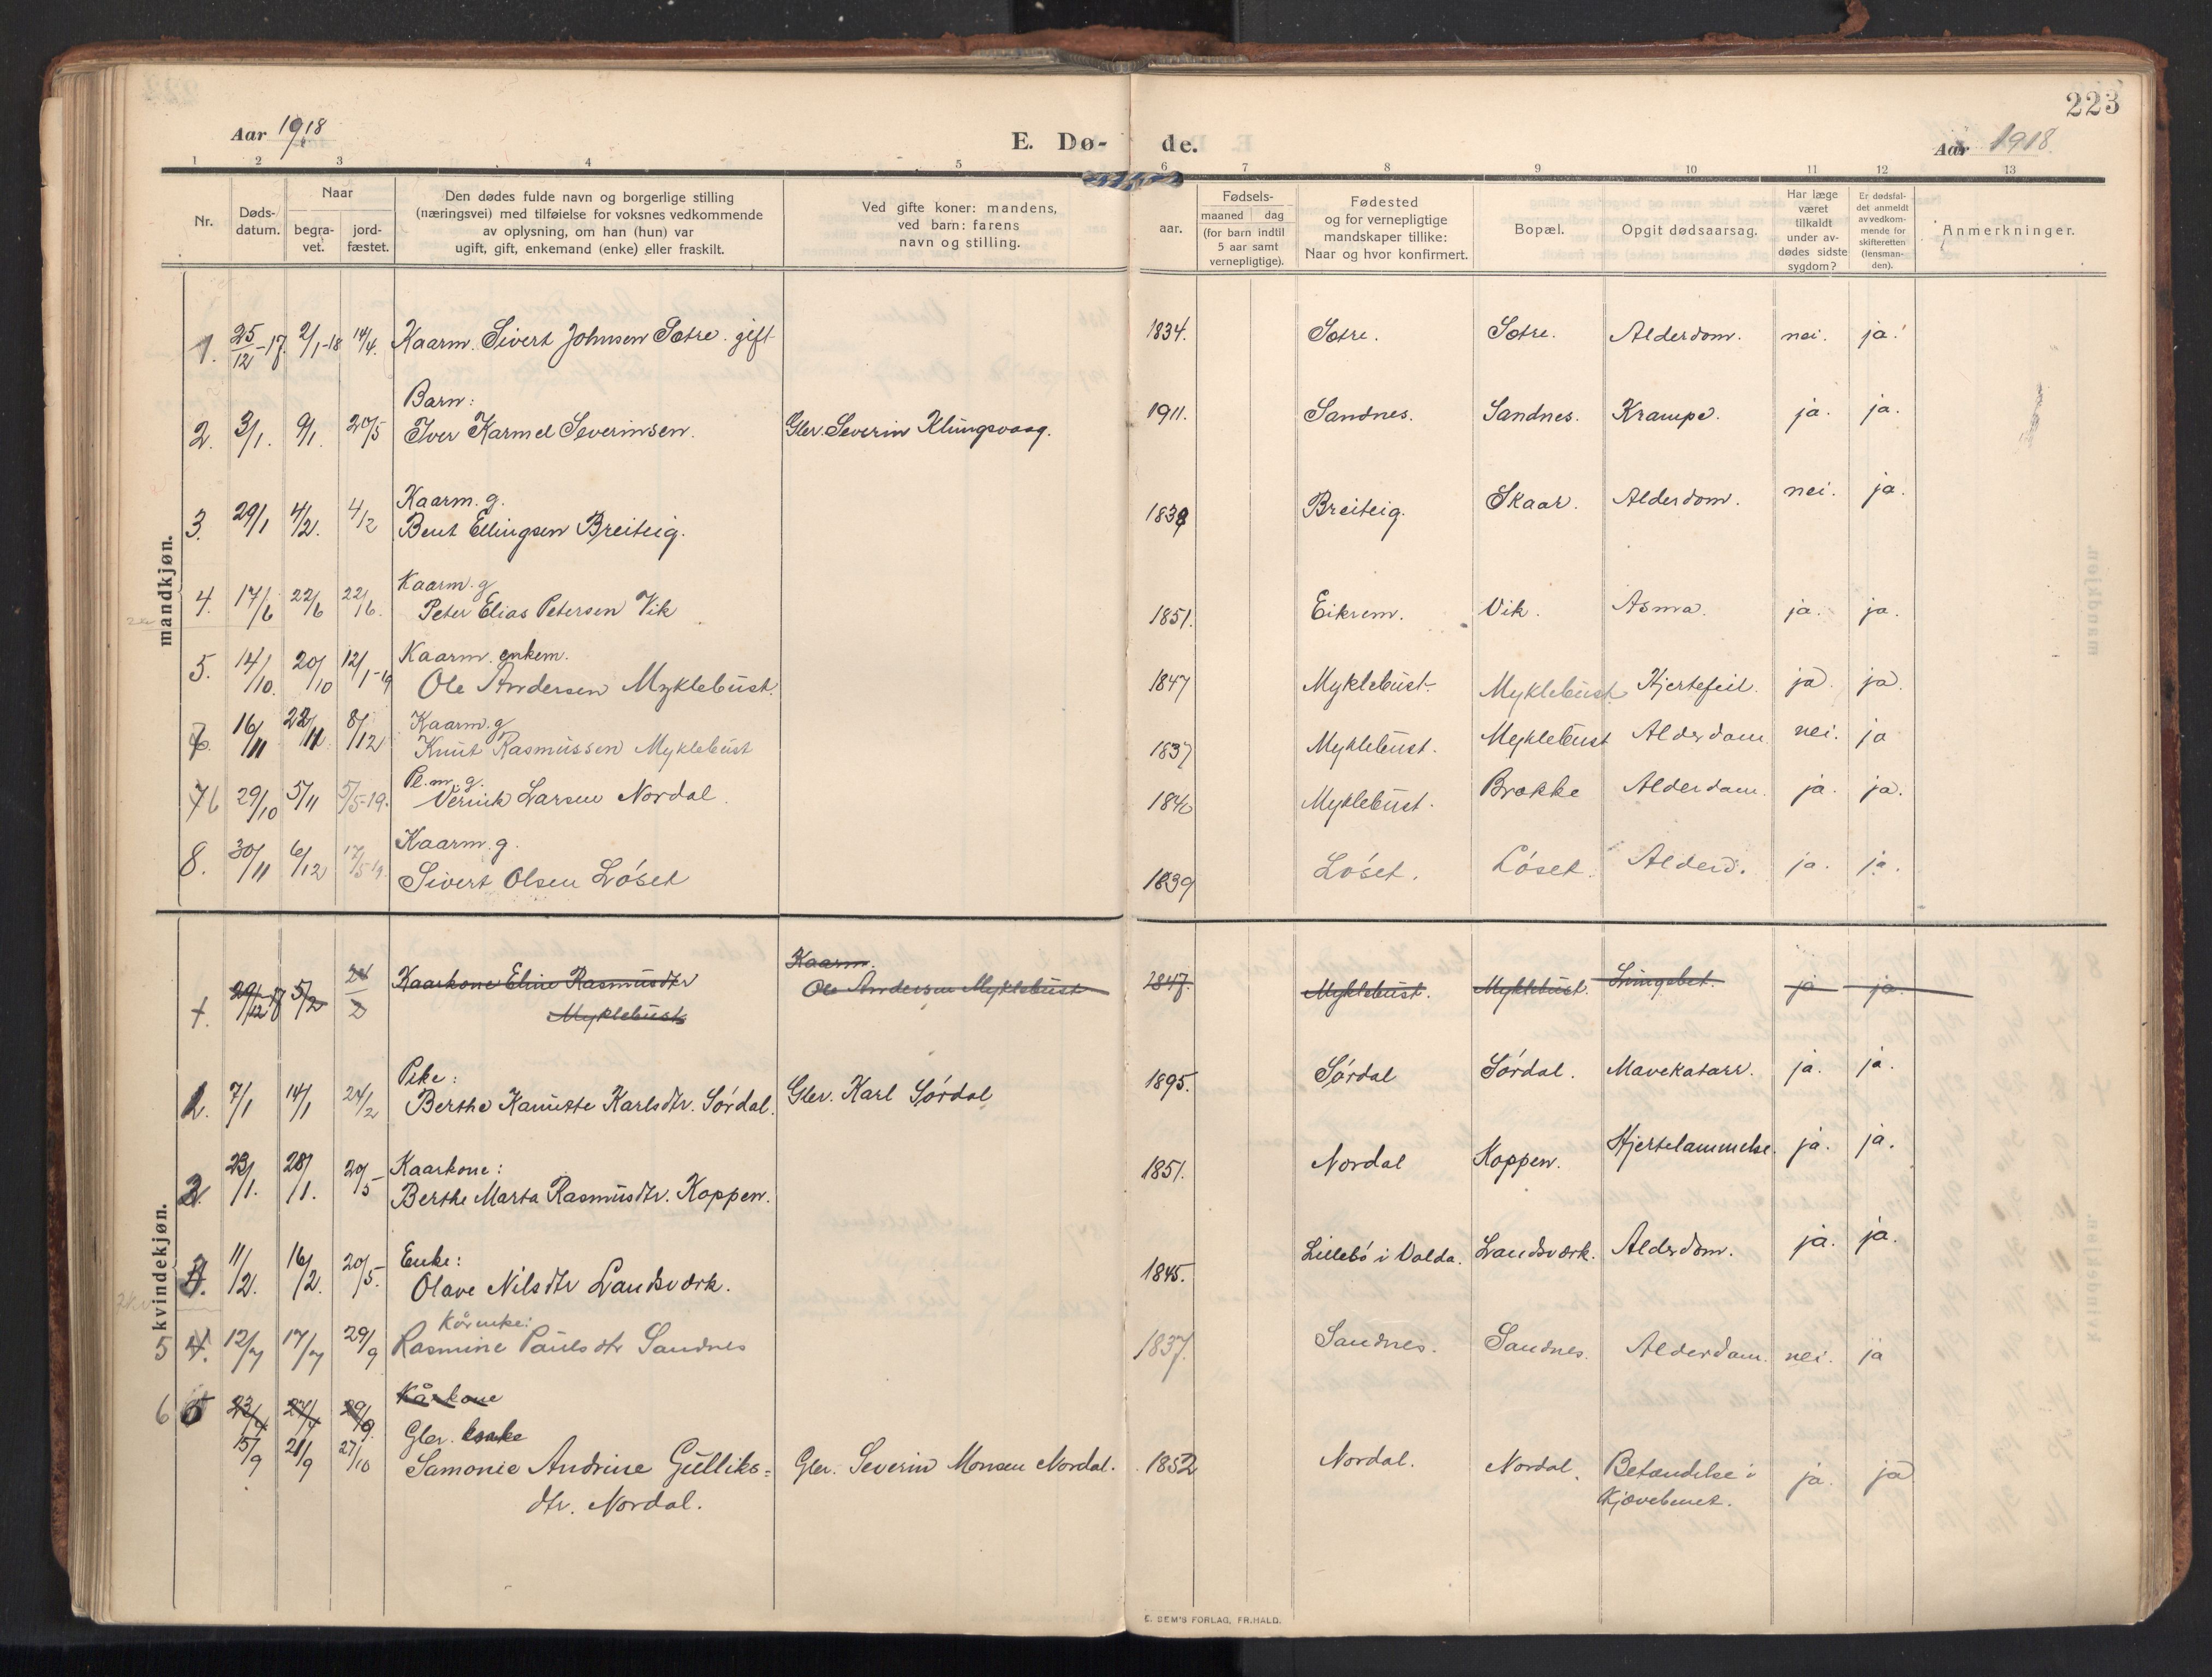 223
Aar 1918
E. Dø-
de.
Aar 1918.
1 2 3 4 5 6 7 8 9 10 11 12 13
Nr.
Døds-
datum.
Naar
begra-
vet.
jord-
fæstet.
Den dødes fulde navn og borgerlige stilling
(næringsvei) med tilføielse for voksnes vedkommende
av oplysning, om han (hun) var
ugift, gift, enkemand (enke) eller fraskilt.
Ved gifte koner: mandens,
ved barn: farens
navn og stilling.
aar.
Fødsels-
maaned dag
(for barn indtil
5 aar samt
vernepligtige).
Fødested
og for vernepligtige
mandskaper tillike:
Naar og hvor konfirmert.
Bopæl.
Opgit dødsaarsag.
Har læge
været
tilkaldt
under av-
dødes sidste
sygdom?
Er dødsfal-
det anmeldt
av vedkom-
mende for
skifteretten
(lensman-
den).
Anmerkninger.
mandkjøn.
1. 25/12-17. 2/1-18 14/4. Kaarm. Sivert Johnsen Sætre. gift 1834. Sætre. Sætre. Alderdom. nei. ja.
Barn:
2. 3/1. 9/1. 20/5 Iver Karmel Severinsen. Gler. Severin Klungsvaag. 1911. Sandnes. Sandnes. Krampe. ja. ja.
Kaarm. g.
3. 29/1 4/2. 4/2 Bent Ellingsen Breiteig. 1839 Breiteig. Skaar. Alderdom. nei. ja.
Kaarm. g
4. 17/6 22/6 22/6. Peter Elias Petersen Vik 1851. Eikrem. Vik. Asma. ja. ja.
Kaarm. enkem.
5. 14/10. 20/10 12/1-19 Ole Andersen Myklebust. 1847 Myklebust. Myklebust Hjertefeil. ja. ja.
Kaarm. g
16/11 22/11. 8/12 Knut Rasmussen Myklebust 1837 Myklebust. Myklebust Alderdom. nei. ja
Pl.m. g.
76 29/10 5/11 5/5-19. Larsen Nordal. 1840 Myklebust. Brække Alderdam. ja. ja.
Kaarm. g.
8. 30/11 6/12 17/5-19. Sivert Olsen Løset 1839 Løset. Løset. Alderd. ja. ja.
kvindekjøn.
Kaarm.
1. 29/12-17 5/2 24/2 Kaarkone Eline Rasmusdtr Ole Andersen Myklebust 1847. Myklebust. Myklebust. ja ja.
Myklebust
Pike:
7/1 14/1 24/2 Berthe Karlsdtr. Sørdal. Gler. Karl Sørdal 1895. Sørdal Sørdal. Mavekatarr. ja. ja.
Kaarkone:
2. 23/1. 28/1. 20/5 Berthe Marta Rasmusdtr. Koppen. 1851. Nordal Koppen. Hjertelammelse. ja. ja.
Enke:
3. 11/2. 16/2. 20/5. Olave Nilsdtr Landsværk. 1845. Lillebø i Volda. Landsværk. Alderdom. ja. ja.
Kårenke:
5 4. 12/7 17/7 29/9 Rasmine Paulsdtr Sandnes 1837. Sandnes. Sandnes. Alderdam. nei. ja
Kårkone
6 5 23/7 27/7 29/9. Gler.
15/9 21/9 27/10 Samonie Andrine Gulliks= Gler. Severin Monsen Nordal. 1852 Nordal. Nordal. Betændelse i ja. ja
dtr. Nordal. Kjævebenet.
E. SEM'S FORLAG, FR.HALD.